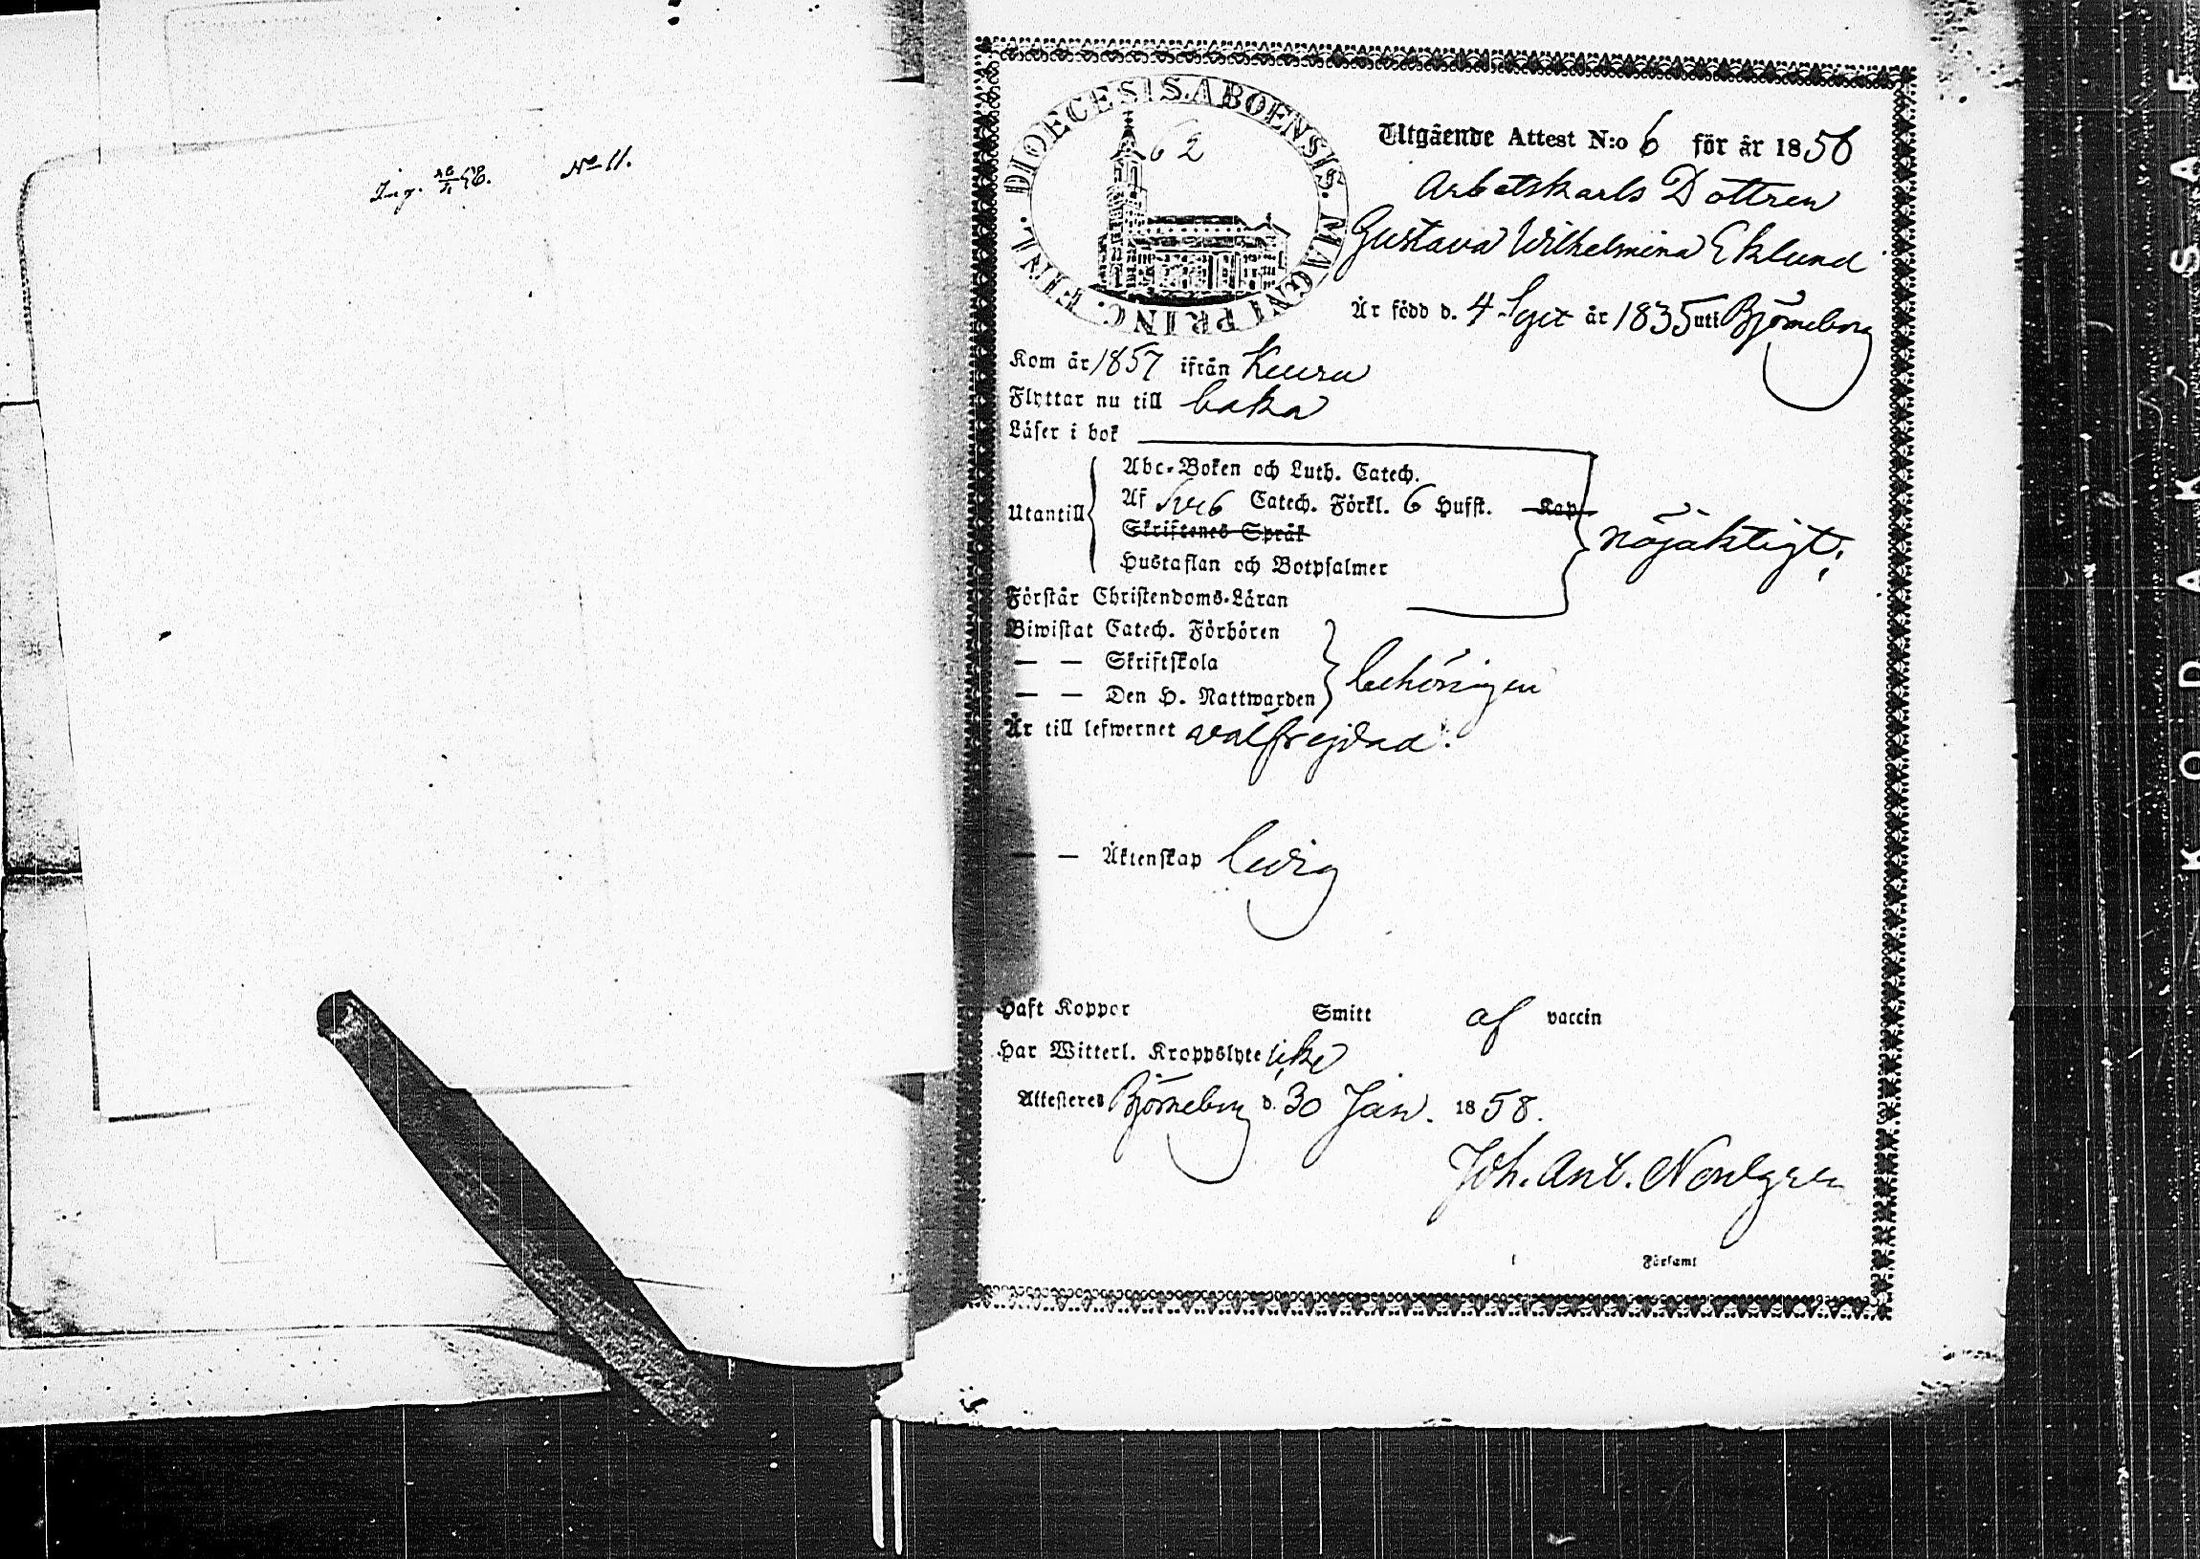 No 11.
DIOECESIS ABOENSIS. MAGNI PRINC. FINL.
62
Utgående Attest N:o 6 för år 1858
Arbetskarls Dottren
Gustava Wilhelmina Eklund
Är född d. 4 Sept år 1835 uti Björneborg
Kom år 1857 ifrån Keuru
Flyttar nu till baka
Läser i bok
Abc-Boken och Luth. Catech.
Af Sveb Catech. Förkl. 6 Hufst. Kap
Utantill
Skriftenes Språk
nöjaktigt;
Hustaflan och Botpsalmer
Förstår Christendoms-Läran
Biwistat Catech. Förhören
— — Skriftskola
behörigen
— — Den H. Nattwarden
Är till lefwernet välfrejdad.
— — Äktenskap ledig
Haft Koppor Smitt af vaccin
Har Witterl. Kroppslyte icke
Attesteres Björneborg d. 30 Jan. 1858.
Joh. Ant. Nordgren
i Församl
KODAK SAFE